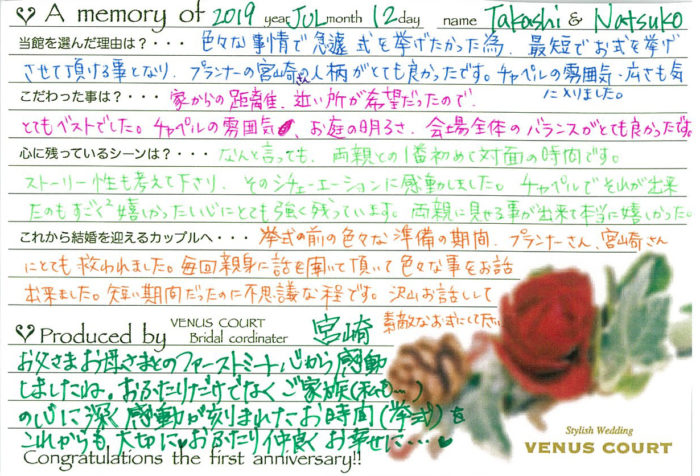 ♡ A memory of 2019 year JUL month 12 day name Takashi & Natsuko
当館を選んだ理由は？・・・ 色々な事情で急遽 式を挙げたかった為、最短でお式を挙げ
させて頂ける事となり、プランナーの宮崎さん人柄がとても良かったです。チャペルの雰囲気・広さも気
に入りました。
こだわった事は？・・・ 家からの距離、近い所が希望だったので、
とてもベストでした。チャペルの雰囲気、お庭の明るさ、会場全体のバランスがとても良かったです。
心に残っているシーンは？・・・ なんと言っても、両親との1番初めて対面の時間です。
ストーリー性も考えて下さり、そのシチュエーションに感動しました。チャペルでそれが出来
たのもすごく²嬉しかったし心にとても強く残っています。両親に見せる事が出来て本当に嬉しかった。
これから結婚を迎えるカップルへ・・・ 挙式の前の色々な準備の期間、プランナーさん、宮崎さん
にとても救われました。毎回親身に話を聞いて頂いて色々な事をお話
出来ました。短い期間だったのに不思議な程です。沢山お話しして
素敵なお式にして下さい
♡ Produced by VENUS COURT Bridal cordinater 宮崎
お父さまお母さまとのファーストミート心から感動
しましたね。おふたりだけでなくご家族（私も…）
の心に深く感動が刻まれたお時間（挙式）を
これからも大切に♥おふたり仲良くお幸せに…♥
Congratulations the first anniversary!!
Stylish Wedding
VENUS COURT